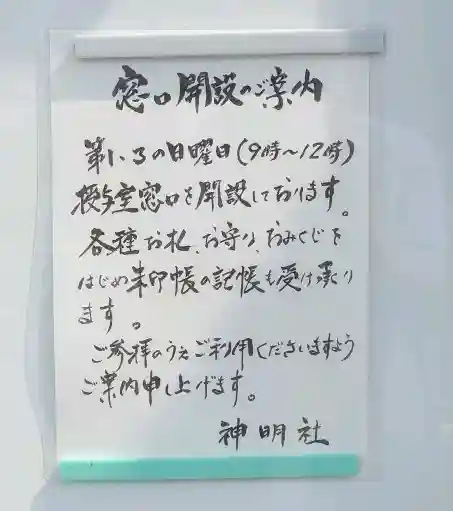 窓口開設のご案内
第1、3の日曜日(9時〜12時)
授与室窓口を開設しております。
各種お札、お守り、おみくじを
はじめ朱印帳の記帳も受け承り
ます。
ご参拝のうえご利用くださいますよう
ご案内申し上げます。
神明社